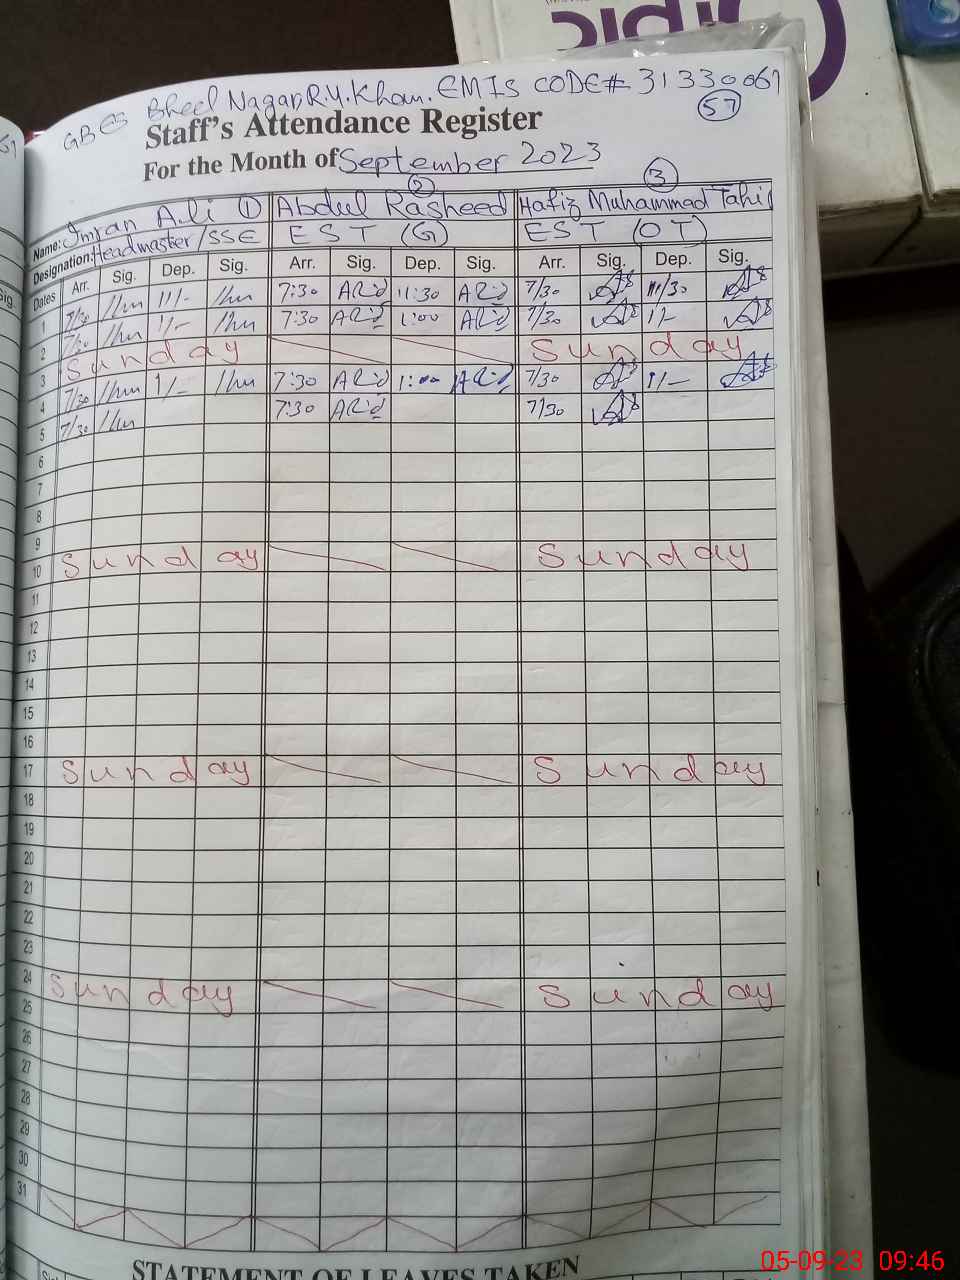 GBES Bheel Nagar, R.Y.Khan. EMIS CODE# 31330061
57
Staff's Attendance Register
For the Month of September 2023
Name: Imran Ali 1 Abdul Rasheed 2 Hafiz Muhammad Tahir 3
Designation: Headmaster/SSE EST (G) EST (OT)
Dates Arr. Sig. Dep. Sig. Arr. Sig. Dep. Sig. Arr. Sig. Dep. Sig.
1 7/30 11/- 7:30 11:30 7/30 11/30
2 7/30 1/- 7:30 1:00 7/30 1/-
3 Sunday Sunday
4 7/30 1/- 7:30 1:00 7/30 1/-
5 7/30 7:30 7/30
6
7
8
9
10 Sunday Sunday
11
12
13
14
15
16
17 Sunday Sunday
18
19
20
21
22
23
24 Sunday Sunday
25
26
27
28
29
30
31
STATEMENT OF LEAVES TAKEN
05-09-23 09:46